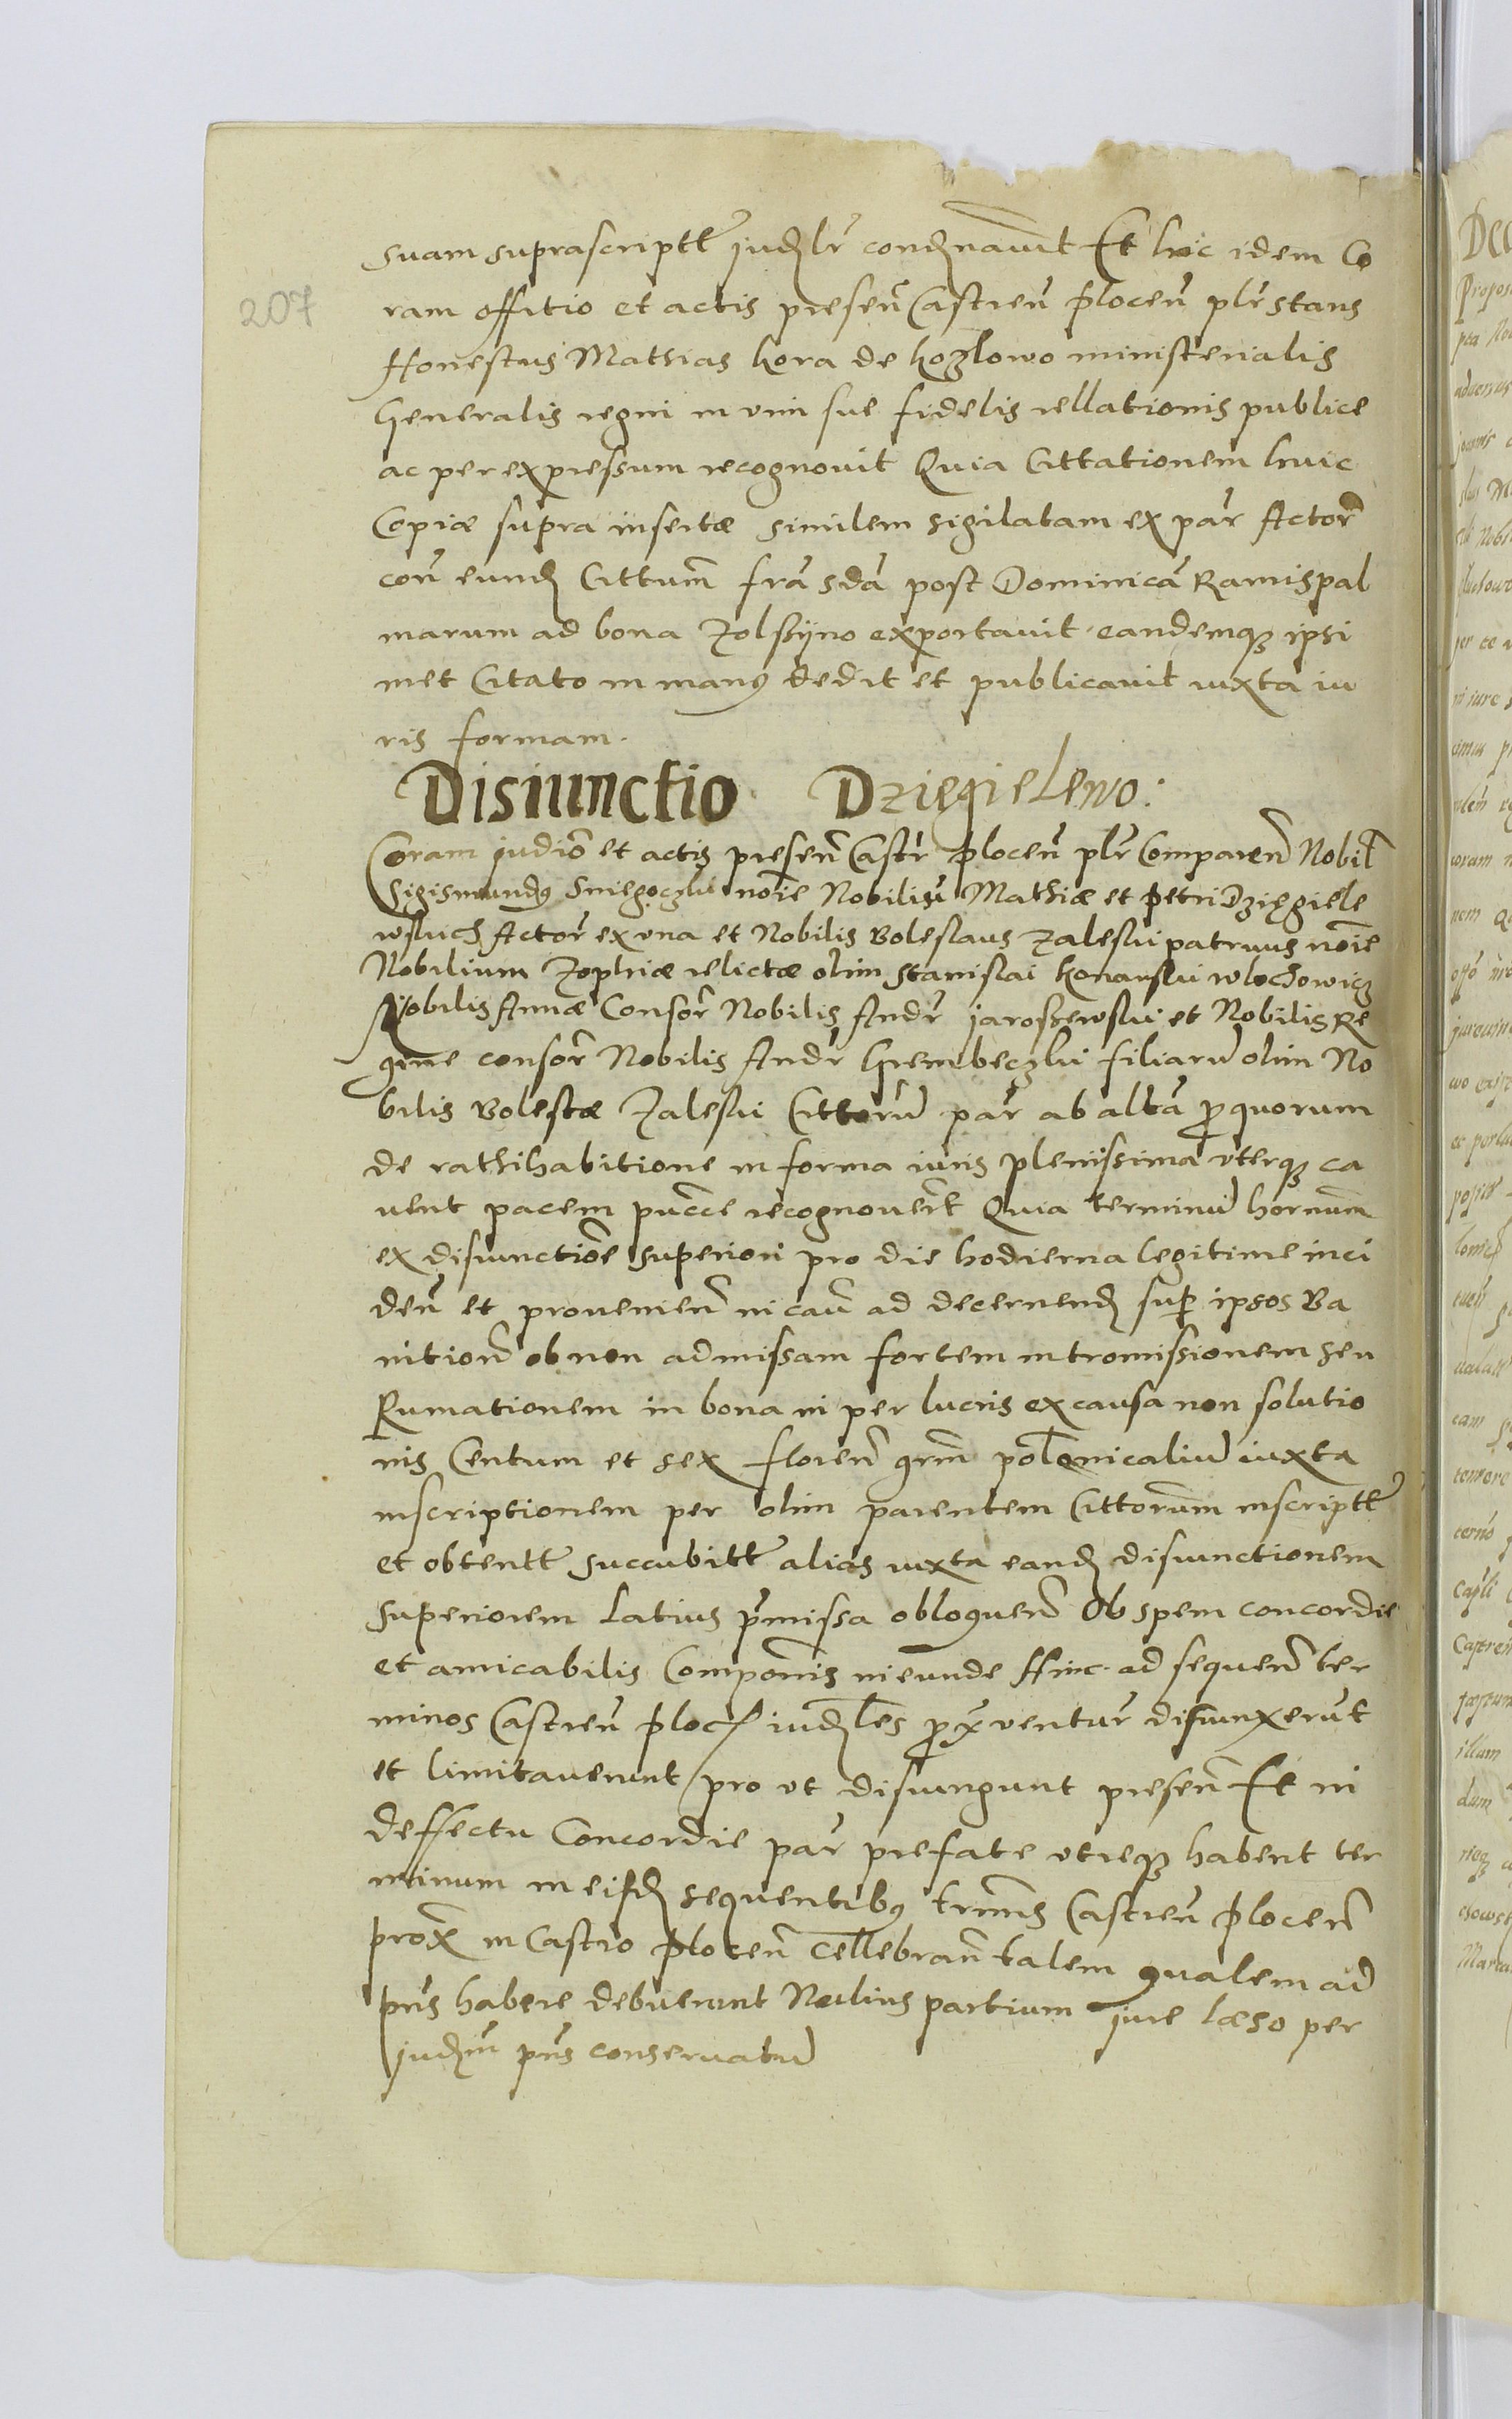 suam suprascriptt judlr condnavit Et hic idem Co
207
ram offitio et actis presen Castren plocen plr stans
Honestus Mathias kora de kozlowo ministerialis
Generalis regni in vim sue fidelis rellationis publice
ac per expressum recognovit Quia Cittationem huic
Copiæ supra insertæ similem sigilatam ex par Actor
con eund Cittum fra sda post Dominica Ramispal
marum ad bona Zolssyno exportavit eandemq ipsi
met Citato in manus dedit et publicavit iuxta iu
ris formam.
Disiunctio Dziegielewo:
Coram judio et actis presen Castr plocen plr Comparen Nobil
Sigismundus Sniegoczki noie Nobiliu Mathiæ et petri Dzięgiele
wskich Actor ex una et Nobilis Boleslaus Zaleski patruus noie
Nobilium Zophiæ relictæ olim Stanislai konarski wlochowicz
Nobilis Annæ Consor Nobilis Andr jarossewski et Nobilis Re
gine consor Nobilis Andr Grembeczki filiaru olim No
bilis Bolestæ Zaleski Cittoru par ab alta pro quorum
de rathihabitione in forma iuris plenissima uterq ca
vent pacem pucce recognovert Quia terminu hornum
ex disiunctioe superiori pro die hodierna legitime inci
den et provenien in cau ad decernend sup ipsos Ba
nition ob non admissam fortem intromissionem seu
Rumationem in bona in per lucris ex causa non solutio
nis Centum et sex floren grm polonicaliu iuxta
inscriptionem per olim parentem Cittorum inscriptt
et obtentt succubitt alias iuxta eand disiunctionem
superiorem Latius pmissa obloquen Ob spem concordie
et amicabilis Componis ineunde Hinc ad sequen ter
minos Castren ploc iudles prox ventur disiunxerut
et limitaverunt pro ut disiungunt presen Et in
deffectu Concordie par prefate utreq habent ter
minum in eisd sequentibus trmis Castren plocen
prox in Castro plocen cellebran talem qualem ad
pns habere debuerunt Nulius partium jure læso per
judm pns conservatu